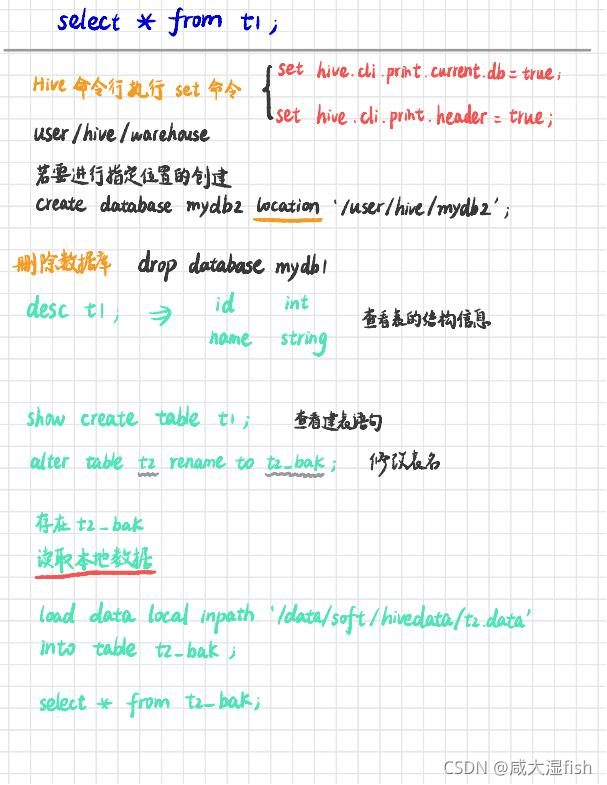 select * from t1;
Hive 命令行执行 set 命令
set hive.cli.print.current.db=true;
set hive.cli.print.header=true;
user/hive/warehouse
若要进行指定位置的创建
create database mydb2 location '/user/hive/mydb2';
删除数据库 drop database mydb1
desc t1; ⇒ id int
name string
查看表的结构信息
show create table t1; 查看建表语句
alter table t2 rename to t2_bak; 修改表名
存在 t2_bak
读取本地数据
load data local inpath '/data/soft/hivedata/t2.data'
into table t2_bak;
select * from t2_bak;
CSDN @咸大湿fish